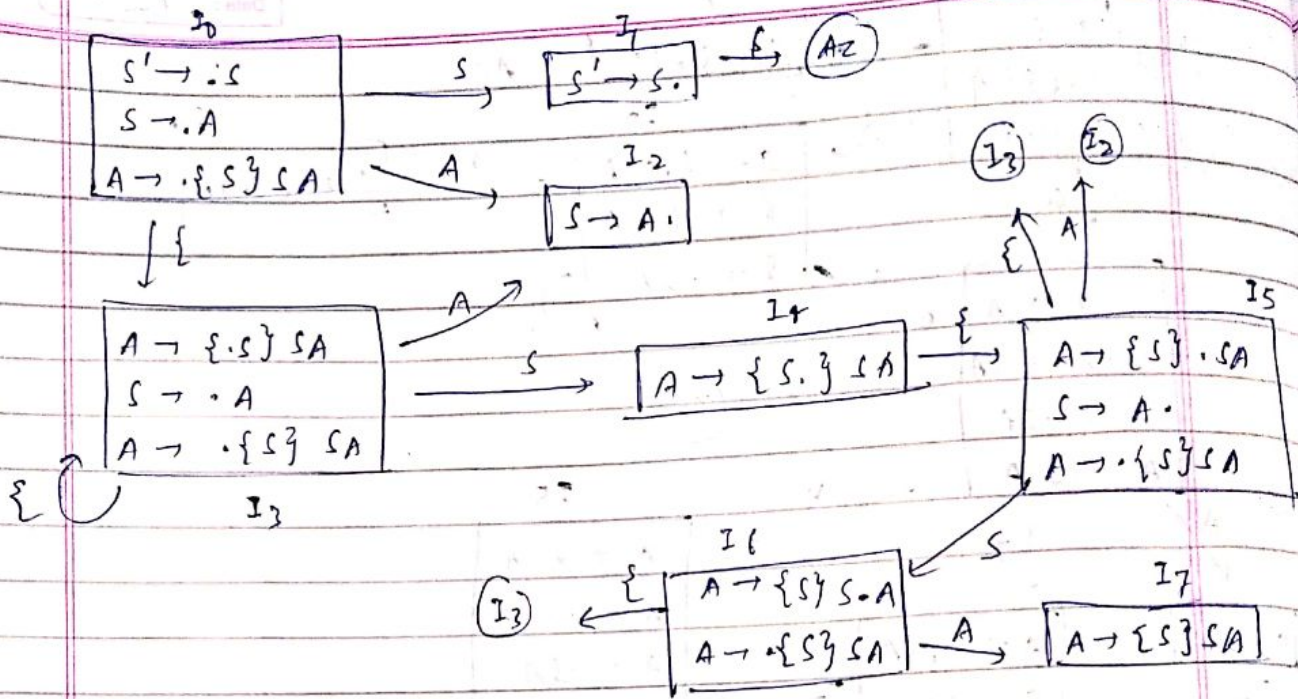 I0
S' → .S
S → .A
A → .{.S} SA
S
I1
S' → S.
A
I2
S → A.
I3
I2
{
A
{
A → {.S} SA
S → .A
A → .{S} SA
{
I3
A
S
I4
A → {S.} SA
{
I5
A → {S} .SA
S → A.
A → .{S}SA
S
I6
A → {S} S.A
A → .{S} SA
{
I3
A
I7
A → {S} SA